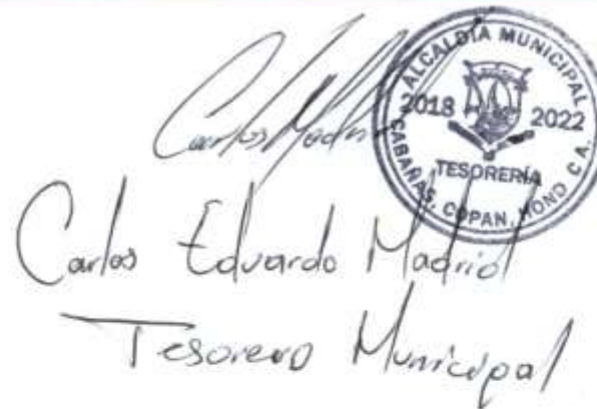 Carlos Madri
ALCALDIA MUNICIPAL
2018 2022
TESORERÍA
CABAÑAS, COPAN, HOND C.A.
Carlos Eduardo Madrid
Tesorero Municipal